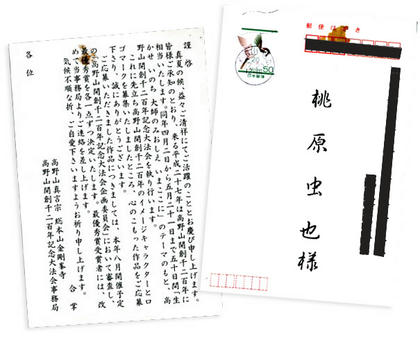 謹啓
真夏の候、益々ご清祥にてご活躍のこととお慶び申し上げます。
皆様ご承知のとおり、来る平成二十七年は高野山開創千二百年に
相当いたします。同年四月二日から五月二十一日まで五十日間「生
かせいのち 大師のみ いまここに」のテーマのもと、高
野山開創千二百年記念大法会を執り行います。
これに先立ち高野山開創千二百年のイメージキャラクターとロ
ゴマークを募集いたしましたところ、心のこもった作品をご応募
下さり、誠にありがとうございます。
ご応募いただきました作品につきましては、本年八月開催予定
の高野山開創千二百年記念大法会企画委員会において審査し、
最優秀賞を各一点ずつ決定いたします。最優秀賞受賞者には、改
めて当事務局よりご連絡を差し上げます。
気候不順な折、ご自愛下さいますようお祈り申し上げます。
合掌
高野山真言宗 総本山金剛峯寺
高野山開創千二百年記念大法会事務局
各位
郵便はがき
50
桃原虫也様